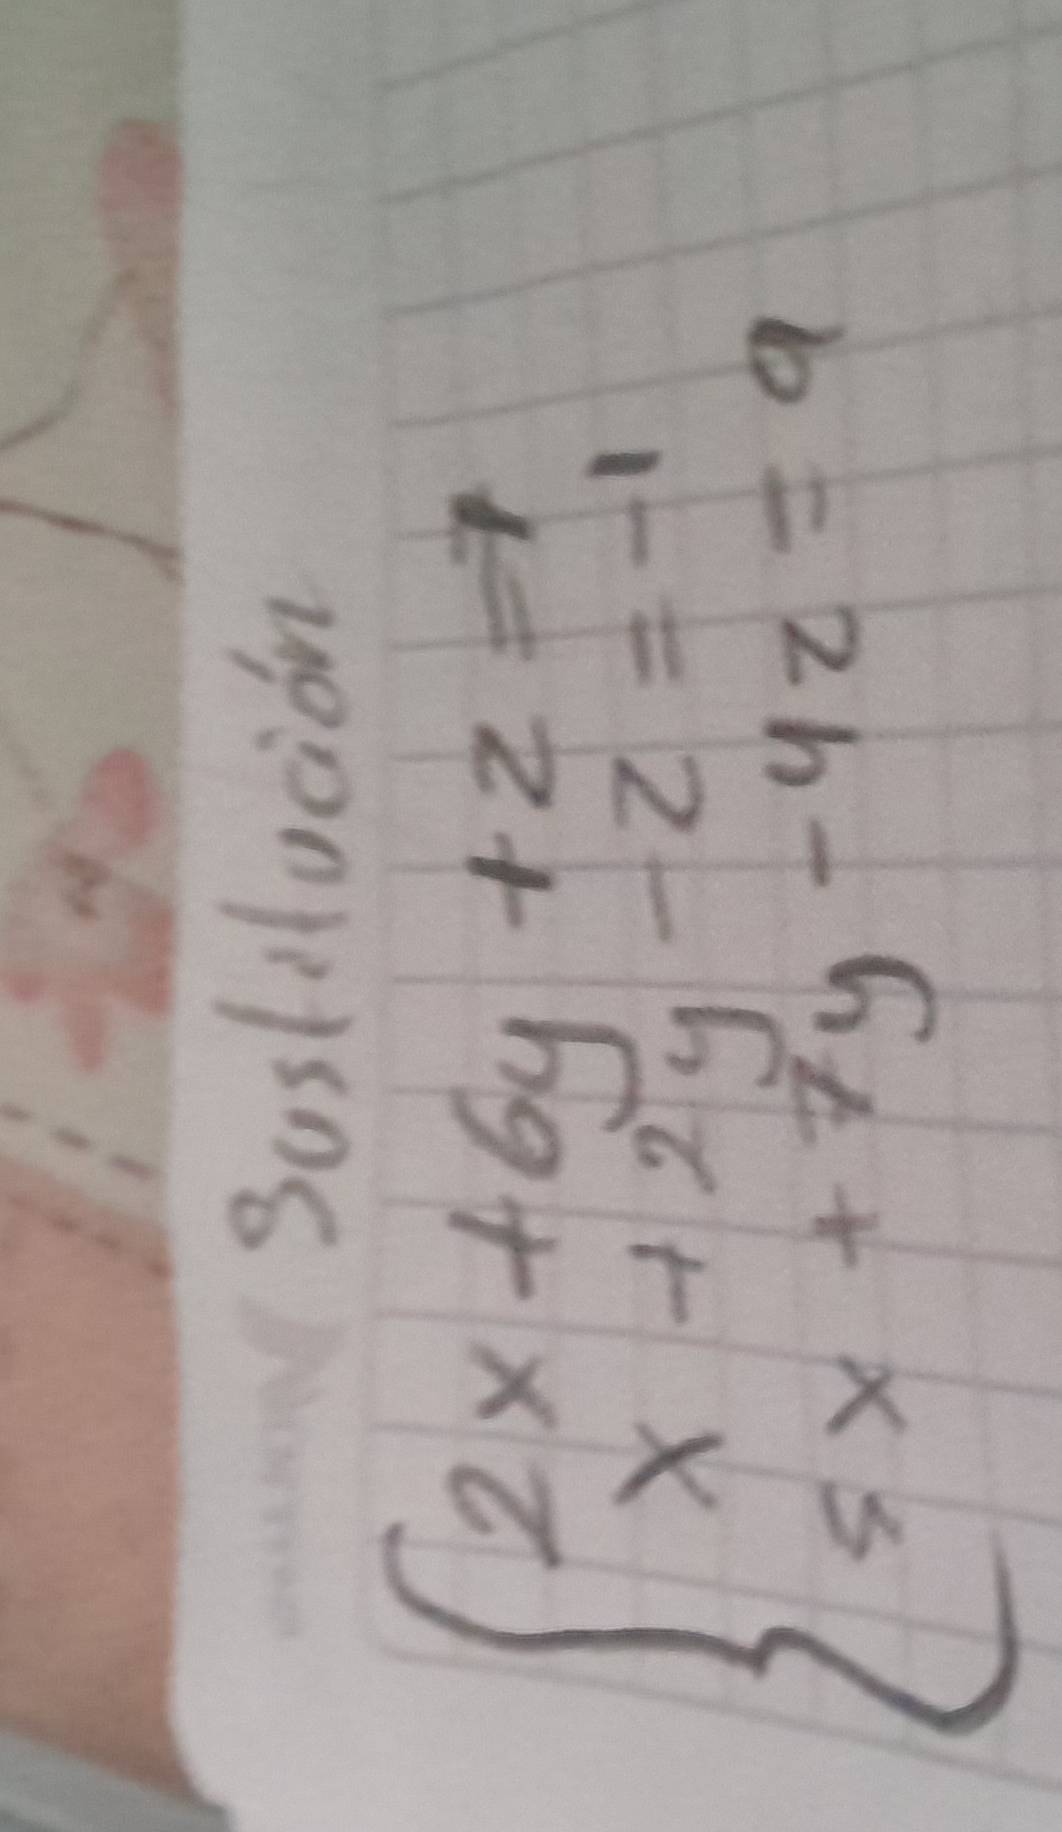 Sustitución
2x + 6y + z = 7
x + 2y - z = -1
5x + 7y - 4z = 9